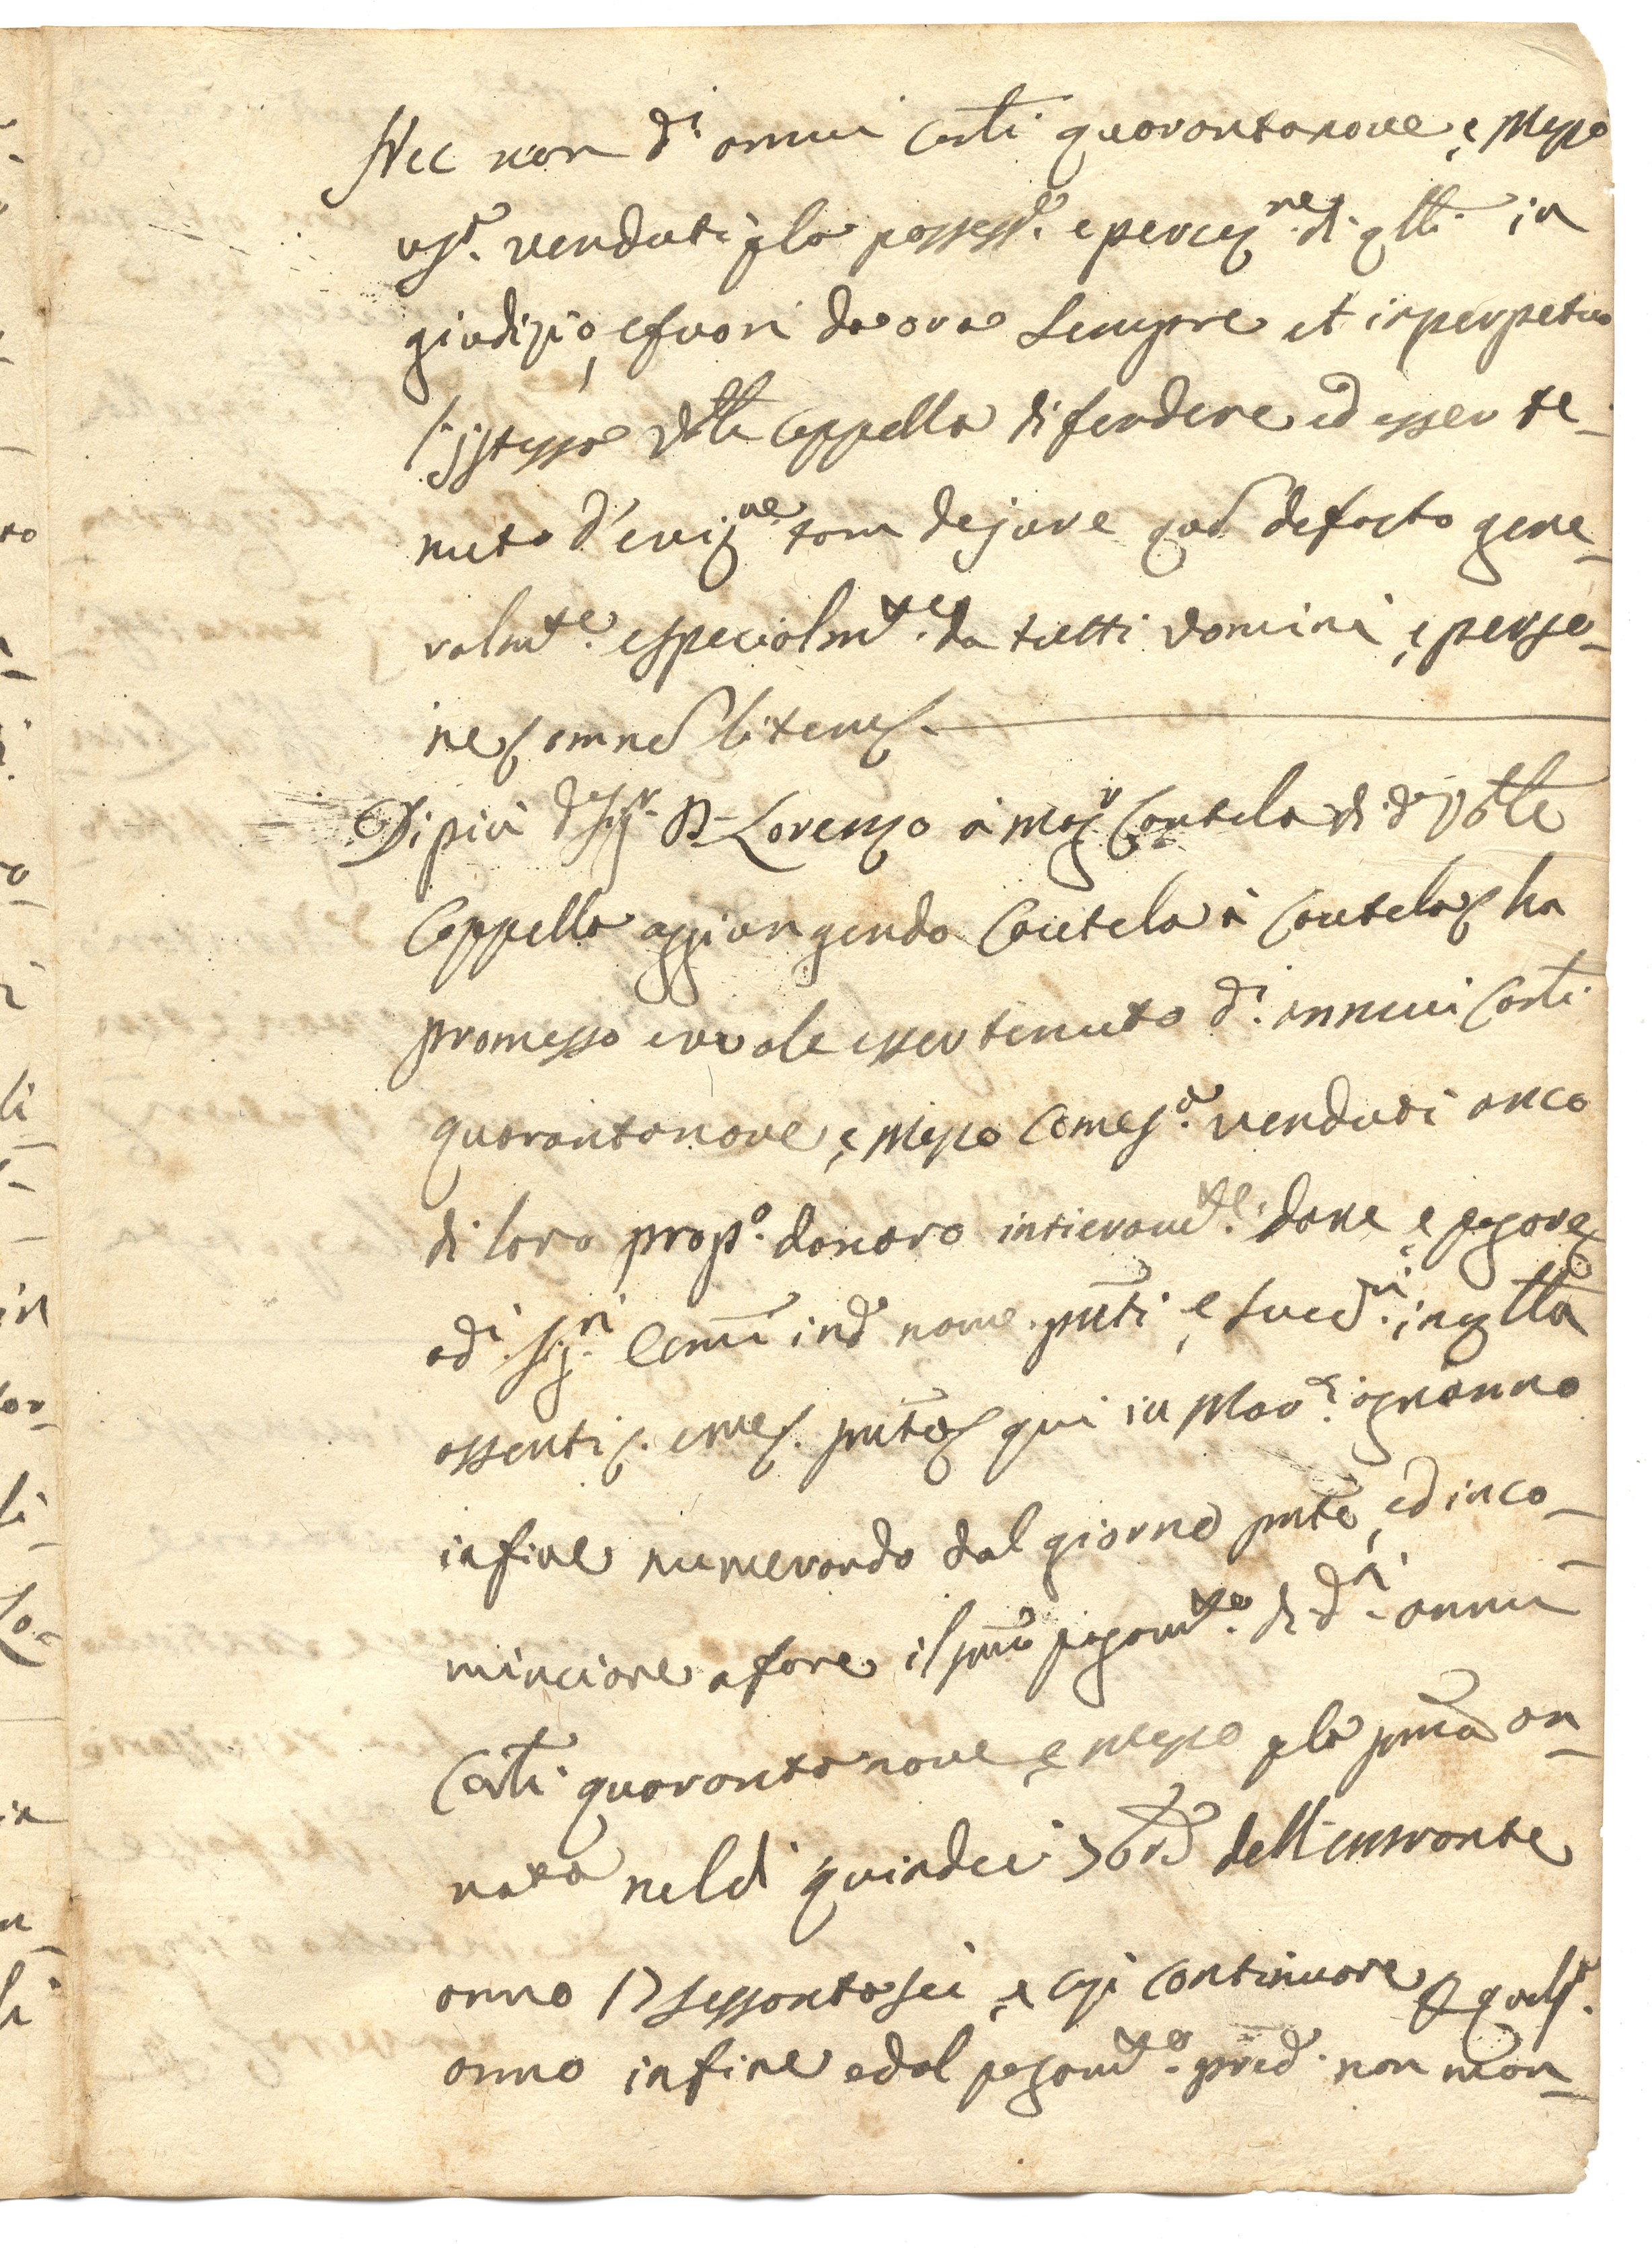 Nec non di annui Carli quarantanove, e Mezzo
vst. venduti p la possess.e e percez.ne di qlli in
giudizio, e fuori da ora sempre et inperpetuo
stessa Cappella difendere ed esser te-
nuto d'eviz.ne tam dejure qad defacto gene-
ralm.te especialm.te da tutti domini, e perso-
ne omne litem
Di più d.o Sig.r D. Lorenzo à mag.r Cautela di
Cappella aggiungendo Cautela à Cautela ha
promesso evvole esser tenuto d.i annui Carli
quarantanove, e mezzo come s.a venduti anco
di loro prop.o danaro intieram.te dare, e pagare
ad.i Sig.ri in d.o nome pnti, e Succ.ri in qlla
assenti qui in ogn'anno
infine numerando dal giorno pnte, ed inco-
minciare a fare il pmo pagam.to di d.i annui
Carli quarantanove, e mezzo p la pma an-
nata nel dì quindeci 7bre dell'entrante
anno 17sessantasei, e così continuare qualss.a
anno infine ed al pagam.to pred.o non man-